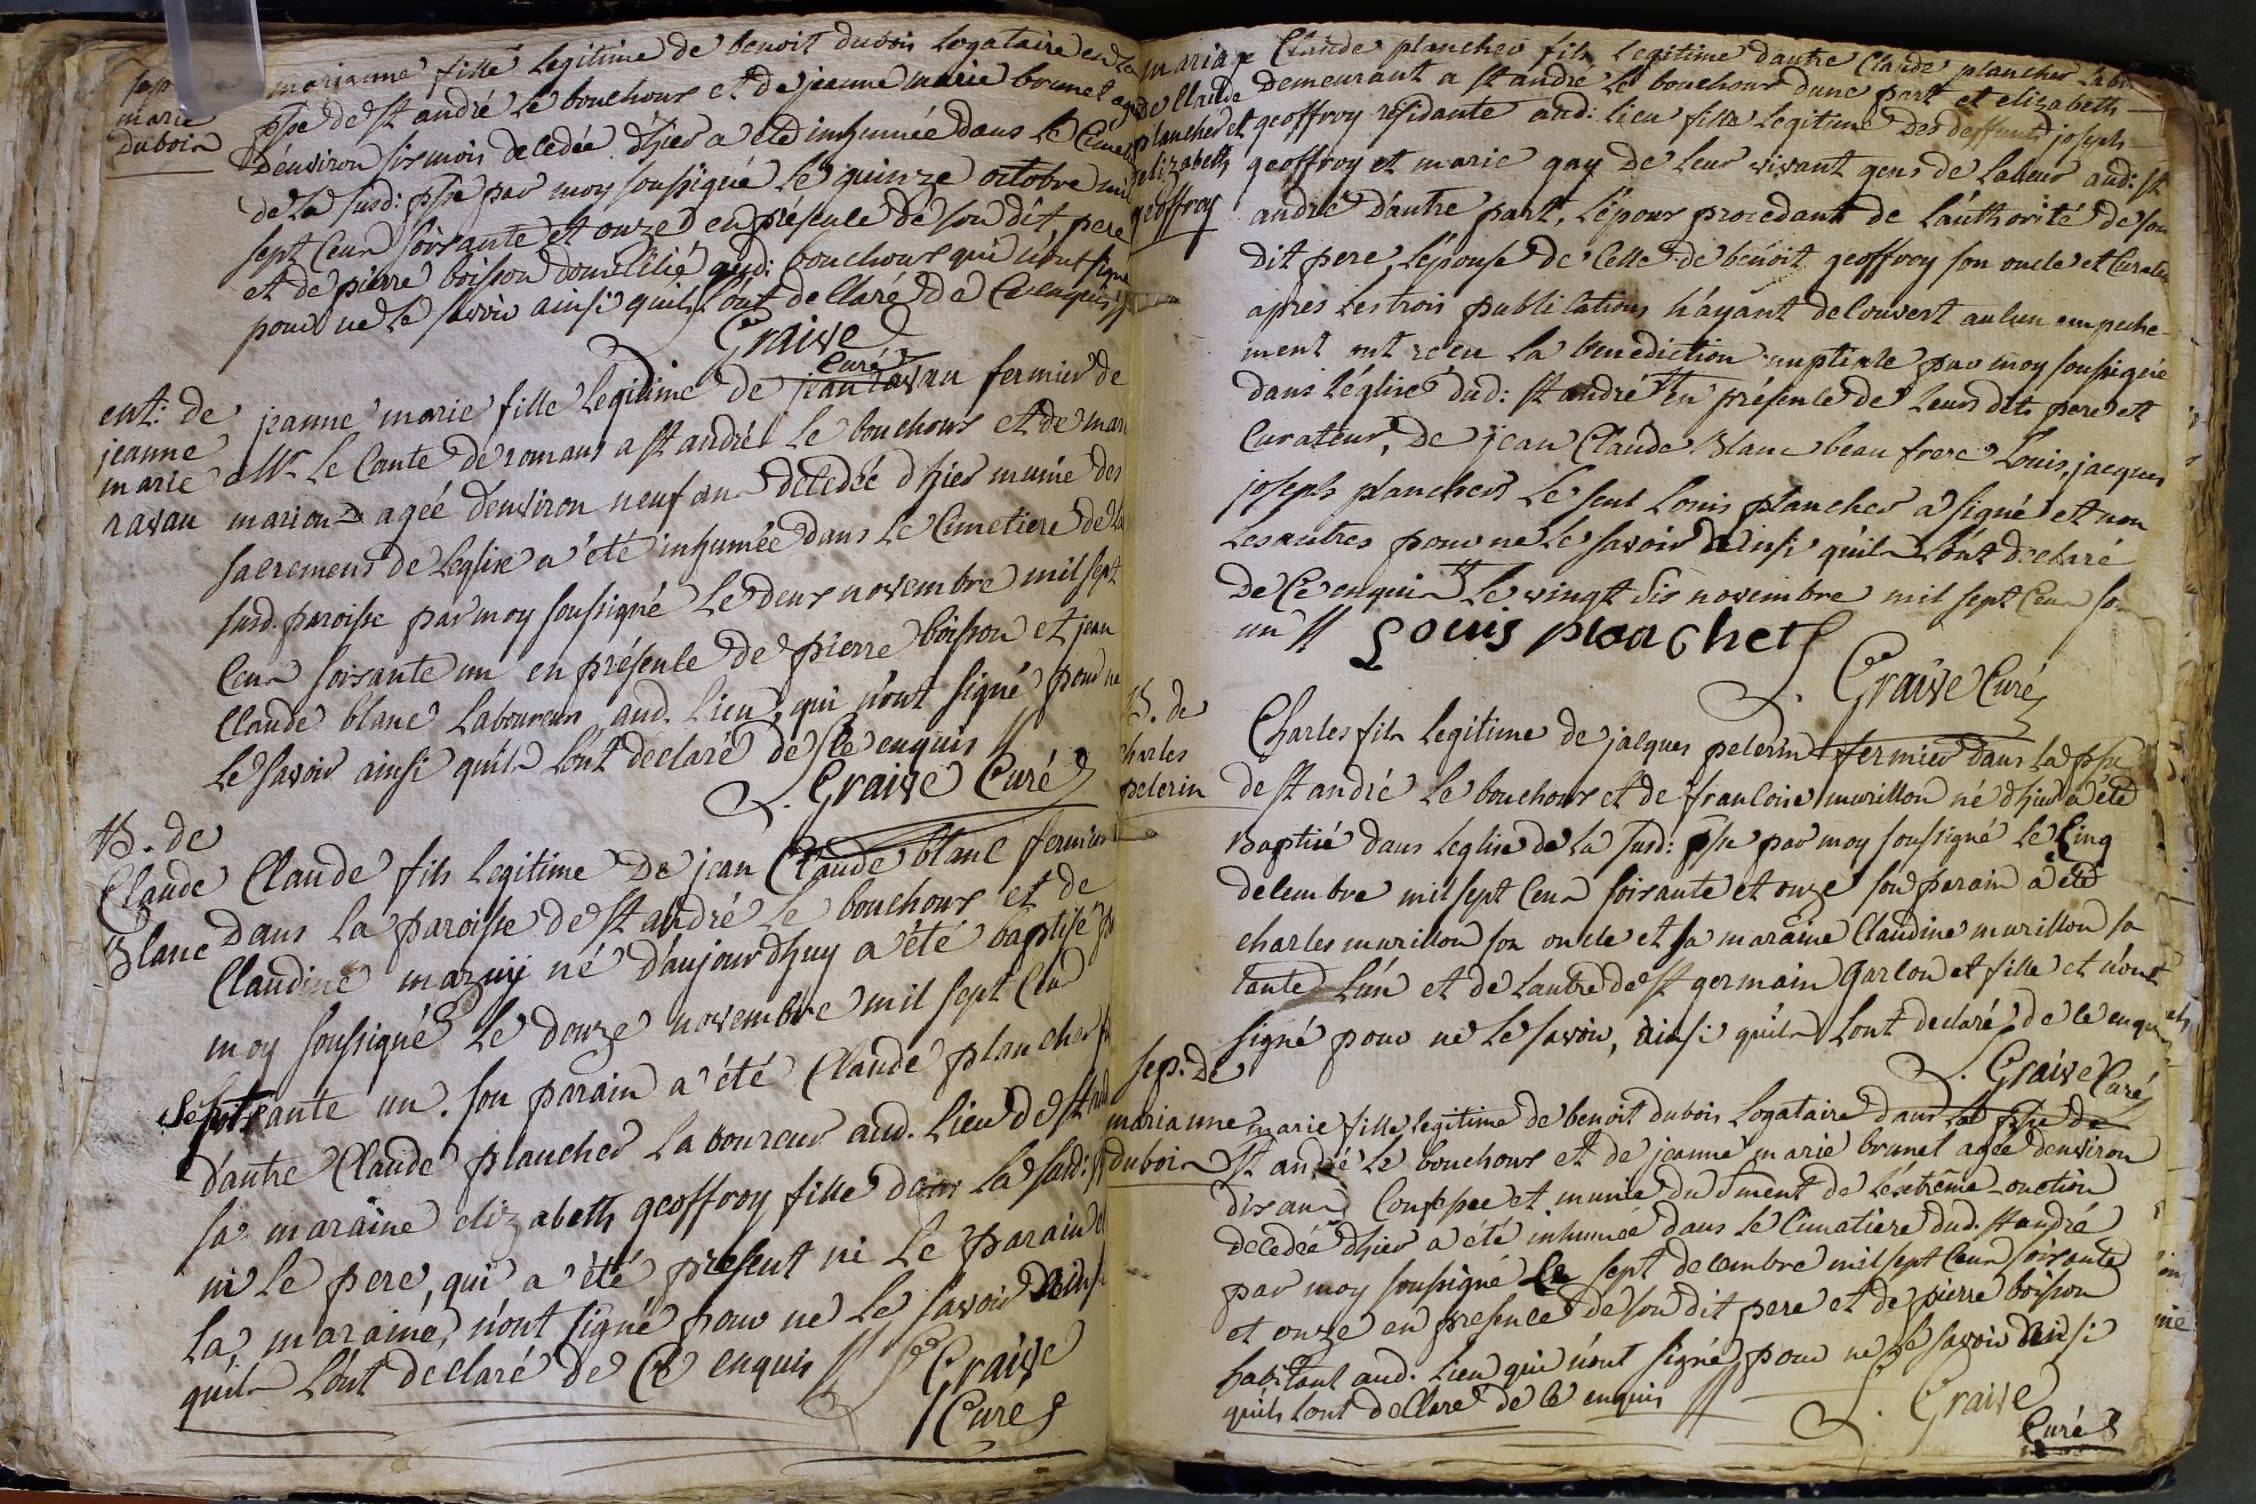 sep
marie
Dubois
marianne fille legitime de benoit dubois logataire en la
ppe de st andré le bouchoux et de jeanne marie brunet agée
d'environ six mois decedée d'hier a eté inhumée dans le Cimetie
de la susd: ppe par moy soussigné le quinze octobre mil
sept Cens soixante et onze en présence de son dit, pere
et de pierre boisson domicilié aud: bouchoux qui n'ont signé
pour ne le savoir ainsi quils l'ont declaré de Ce enquis //
Graive
Curé
ent: de
jeanne
marie
ravau
jeanne marie fille legitime de jean ravau fermier de
Mr. le Conte de romans a st andré le bouchoux et de mari
marion agée d'environ neuf ans decedée d'hier munie des
sacremens de leglise a été inhumée dans le Cimetiere de la
susd. paroisse par moy soussigné le deux novembre mil sept
Cens soixante un en présence de pierre boisson et jean
Claude blanc Laboureurs aud. Lieu, qui n'ont signé pour ne
le savoir ainsi quils l'ont declaré de Ce enquis //
Graive Curé
B. de
Claude
Blanc
Claude fils legitime de jean Claude blanc fermier
dans la paroisse de st andré le bouchoux et de
Claudine mazuy né d'aujourdhuy a été baptisé p
moy soussigné le douze novembre mil sept Cen
septante un. son parain a été Claude plancher fi
d'autre Claude plancher laboureur aud. lieu de st and
sa maraine elizabeth geoffroy fille dans la susd: p
ni le pere, qui a été présent ni le parain et
la maraine, n'ont signé pour ne le savoir ainsi
quils l'ont declaré de Ce enquis //
Graive
Curé
mariage
de Claude
plancher et
elizabeth
geoffroy
Claude plancher fils legitime d'autre Claude plancher labo
demeurant a st andré le bouchoux dune part et elizabeth
geoffroy résidante aud: lieu fille legitime des deffunts joseph
geoffroy et marie gay de leur vivant gens de labeur aud: st
andré d'autre part, l'épous procedant de l'authorité de son
dit pere, l'épouse de Celle de bénoit geoffroy son oncle et Curateu
apres les trois publications n'ayant decouvert aucun empeche
ment ont reçu la benediction nuptiale par moy soussigné
dans l'église dud: st andré en présence de leurs dits pere et
Curateur, de jean Claude Blanc beau frere Louis, jacques
joseph plancher le seul Louis plancher a signé et non
les autres pour ne le savoir ainsi quils l'ont declaré
de Ce enquis le vingt six novembre mil sept Cens soi
un // Louis planchet
Graive Curé
B. de
Charles
pelerin
Charles fils legitime de jacques pelerin fermier dans la ppe
de st andré le bouchoux et de francoise murillon né d'hier a été
Baptisé dans l'eglise de la susd: ppe par moy soussigné le Cinq
decembre mil sept Cens soixante et onze son parain a été
charles murillon son oncle et sa maraine Claudine murillon sa
tante l'un et de l'autre de st germain garcon et fille et n'ont
signé pour ne le savoir, ainsi quils l'ont declaré de ce enquis
Graive Curé
sep: de
marianne
dubois
marie fille legitime de benoit dubois logataire dans la ppe de
st andré le bouchoux et de jeanne marie brunet agée denviron
dix ans Confessée et munie du Sment de l'extrême-onction
decedée d'hier a été inhumée dans le Cimetiere dud. st andré
par moy soussigné le sept decembre mil sept Cens soixante
et onze en presence de son dit pere et de pierre boisson
habitant aud. lieu qui n'ont signé pour ne le savoir ainsi
quils l'ont declaré de ce enquis //
Graive
Curé